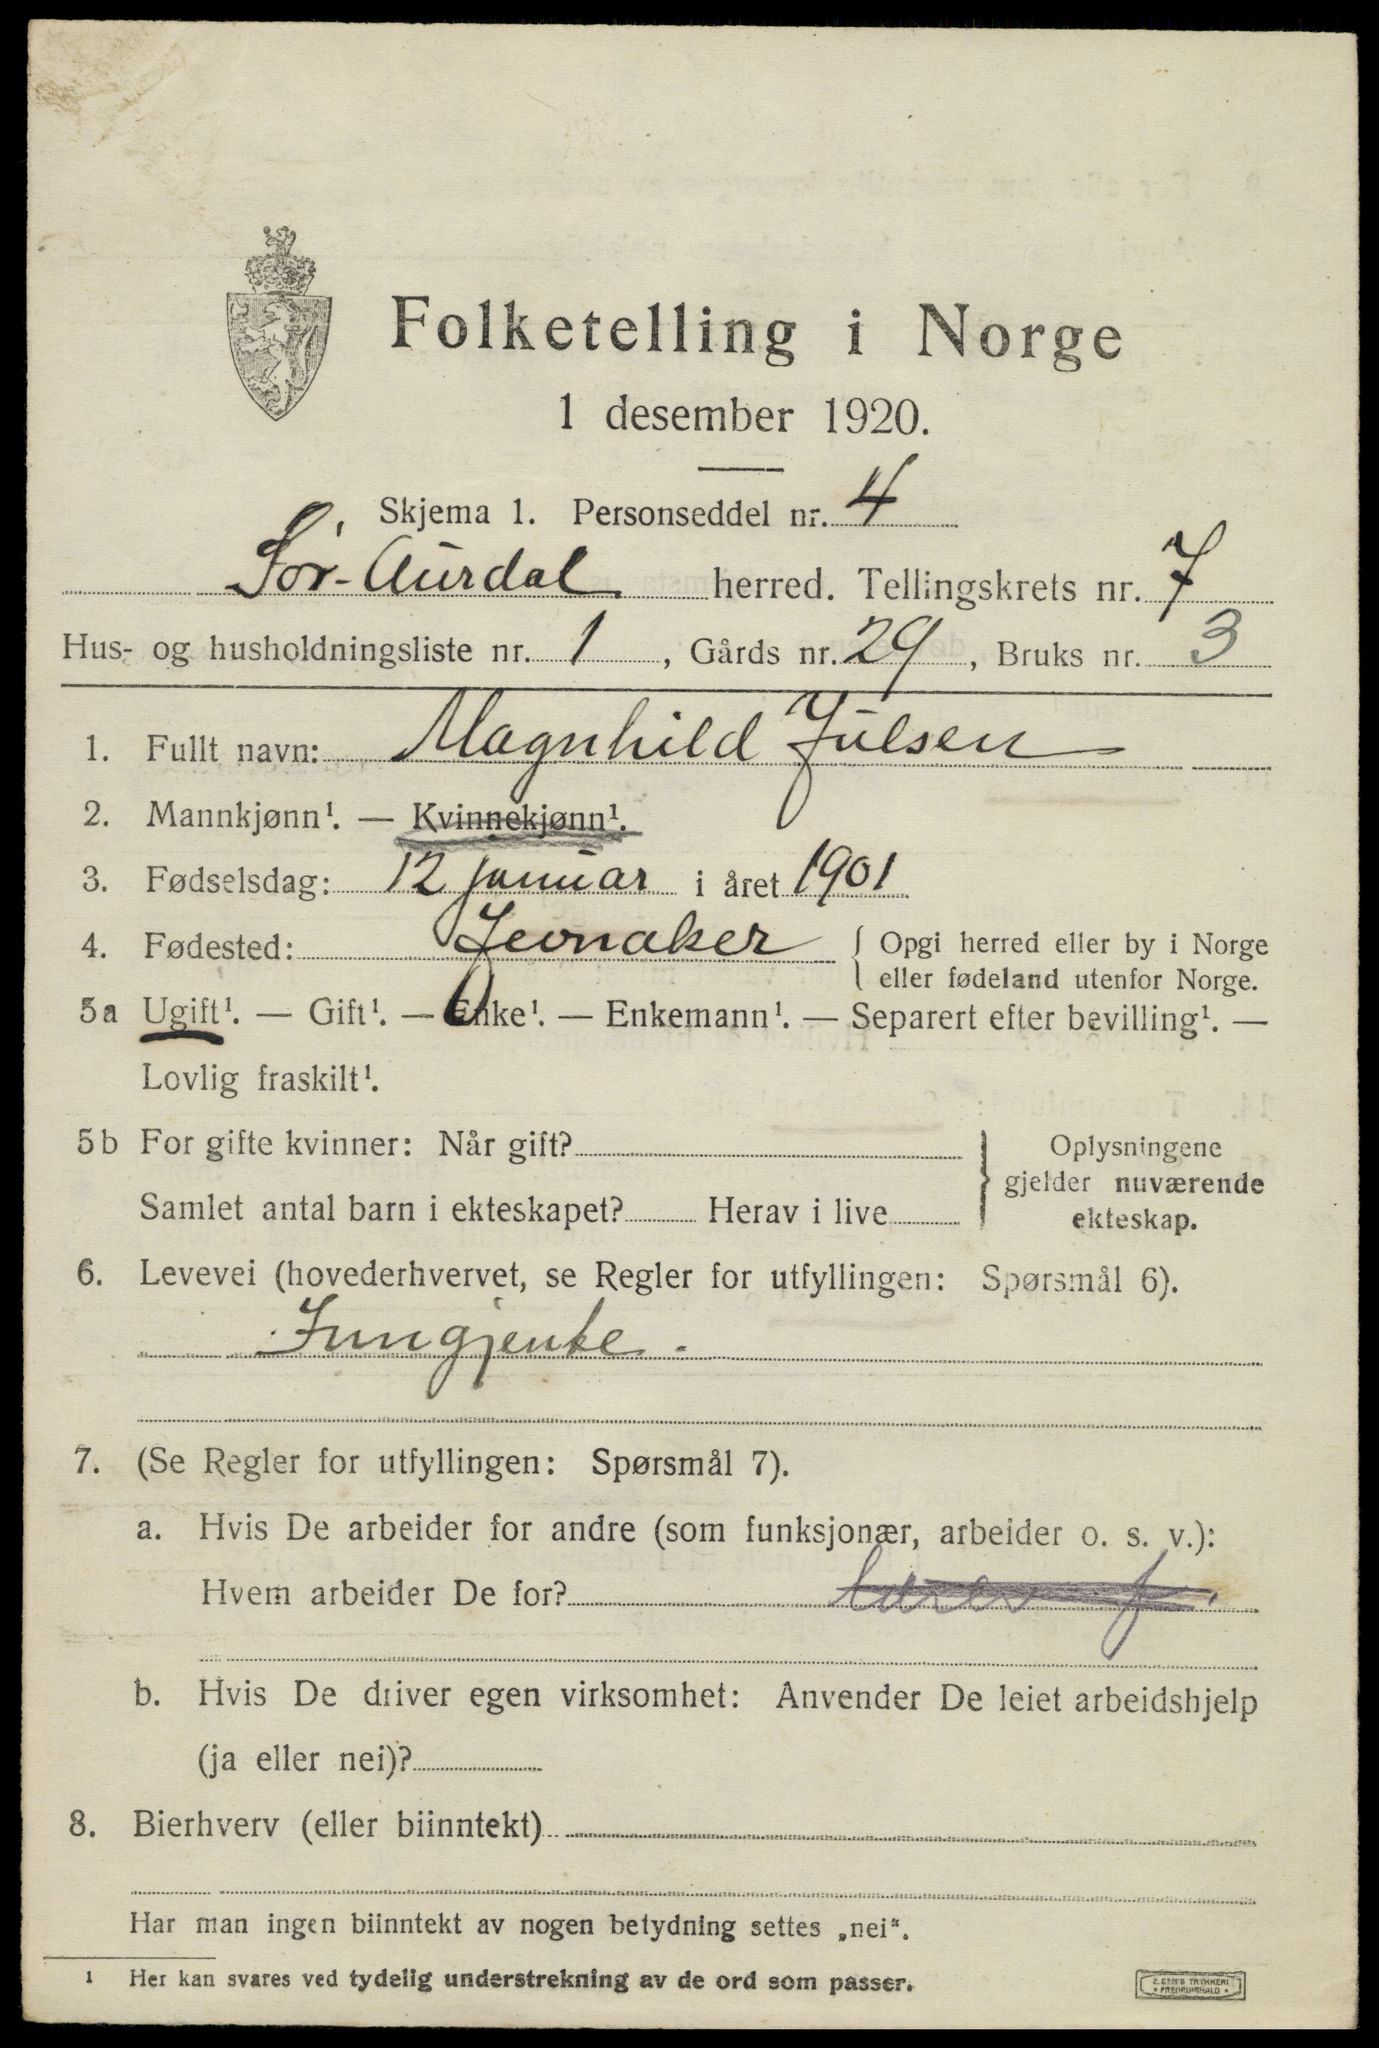 Folketelling i Norge
1 desember 1920.
Skjema 1. Personseddel nr. 4
Sør-Aurdal herred. Tellingskrets nr. 7
Hus- og husholdningsliste nr. 1, Gårds nr. 29, Bruks nr. 3
1. Fullt navn: Magnhild Julsen
2. Mannkjønn¹. — Kvinnekjønn¹.
3. Fødselsdag: 12 januar i året 1901
4. Fødested: Jevnaker { Opgi herred eller by i Norge
eller fødeland utenfor Norge.
5a Ugift¹. — Gift¹. — Enke¹. — Enkemann¹. — Separert efter bevilling¹. —
Lovlig fraskilt¹.
5b For gifte kvinner: Når gift? } Oplysningene
gjelder nuværende
Samlet antal barn i ekteskapet? Herav i live
ekteskap.
6. Levevei (hovederhvervet, se Regler for utfyllingen: Spørsmål 6).
7. (Se Regler for utfyllingen: Spørsmål 7).
a. Hvis De arbeider for andre (som funksjonær, arbeider o. s. v.):
Hvem arbeider De for?
b. Hvis De driver egen virksomhet: Anvender De leiet arbeidshjelp
(ja eller nei)?
8. Bierhverv (eller biinntekt)
Har man ingen biinntekt av nogen betydning settes „nei“.
1 Her kan svares ved tydelig understrekning av de ord som passer.